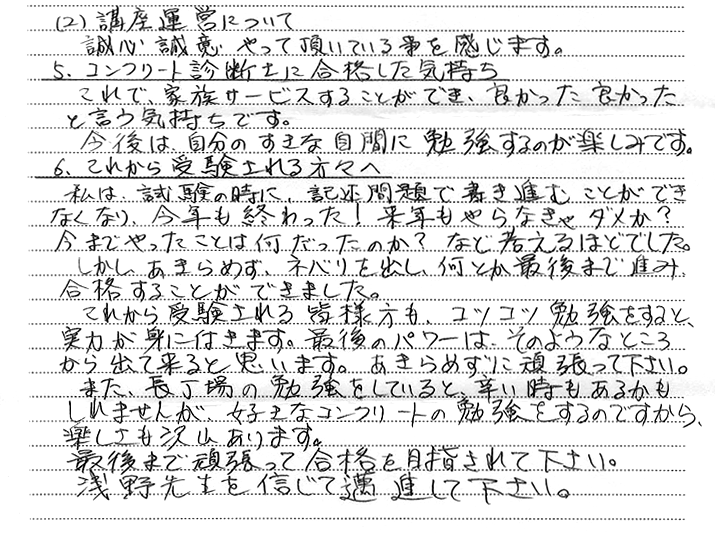 (2) 講座運営について
誠心誠意 やって頂いている事を感じます。
5. コンクリート診断士に合格した気持ち
これで、家族サービスすることができ、良かった良かった
と言う気持ちです。
今後は、自分のすきな時間に勉強するのが楽しみです。
6. これから受験される方々へ
私は、試験の時に、記述問題で書き進むことができ
なくなり、今年も終わった！来年もやらなきゃダメか？
今までやったことは何だったのか？など考えるほどでした。
しかし、あきらめず、ネバリを出し、何とか最後まで進み、
合格することができました。
これから受験される皆様方も、コツコツ勉強をすると、
実力が身に付きます。最後のパワーは、そのようなところ
から出て来ると思います。あきらめずに頑張って下さい。
また、長丁場の勉強をしていると、辛い時もあるかも
しれませんが、好きなコンクリートの勉強をするのですから、
楽しさも沢山あります。
最後まで頑張って合格を目指されて下さい。
浅野先生を信じて邁進して下さい。